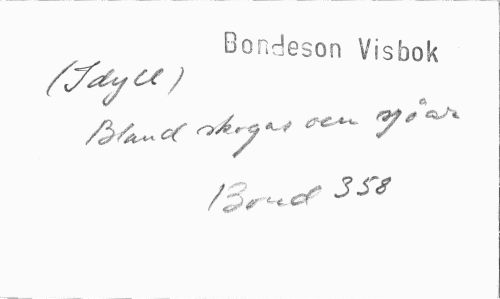 Bondeson Visbok
(Idyll)
Bland skogar och sjöar
Bond 358